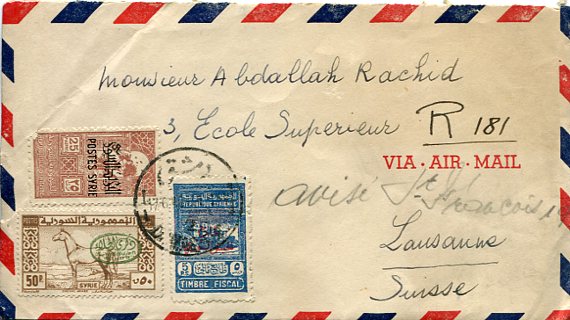 Monsieur Abdallah Rachid
3, Ecole Superieur
R 181
VIA · AIR · MAIL
avisé St François
Lausanne
Suisse
POSTES SYRIE
الجمهورية السورية
50P SYRIE ٥٠
REPUBLIQUE SYRIENNE
5 ٥
TIMBRE FISCAL